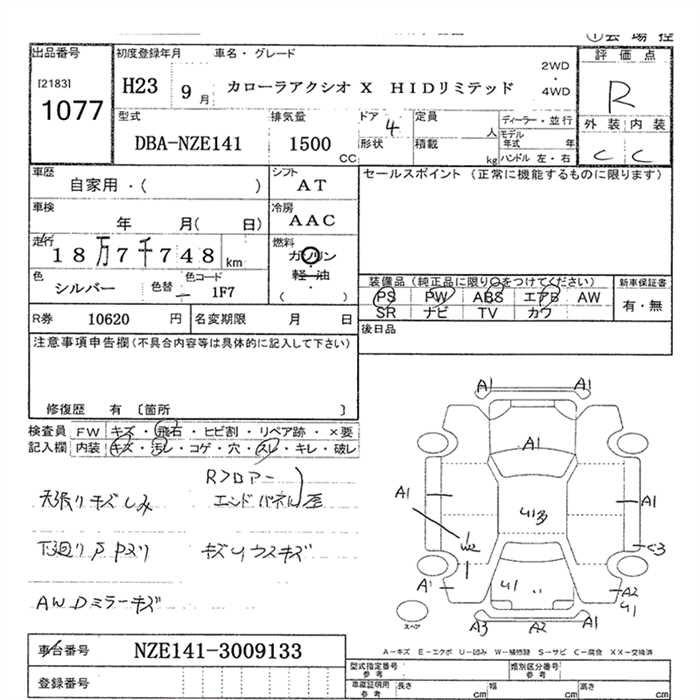 ①会場控
出品番号
[2183]
1077
初度登録年月
車名・グレード
H23
9月
カローラアクシオ X HIDリミテッド
2WD
・
4WD
評価点
R
外装 内装
C C
型式
DBA-NZE141
排気量
1500
CC
ドア 4
形状
定員
人
積載
kg
ディーラー・並行
モデル年式 年
ハンドル 左・右
車歴
自家用・( )
シフト
AT
セールスポイント (正常に機能するものに限ります)
車検
年 月( 日)
冷房
AAC
走行
18万7千748
km
燃料
ガソリン
軽・油
・
( )
色
シルバー
色替
色コード
1F7
装備品 (純正品に限り○をつけてください)
PS PW ABS エアB AW
SR ナビ TV カワ
新車保証書
有・無
R券 10620 円
名変期限 月 日
後日品
注意事項申告欄(不具合内容等は具体的に記入して下さい)
修復歴 有 〔箇所 〕
検査員記入欄
FW キズ・飛石・ヒビ割・リペア跡・×要
内装 キズ・汚レ・コゲ・穴・スレ・キレ・破レ
Rフロアー
エンドパネル歪
天張りキズしみ
下廻りサビスリ
キズUウスキズ
AWDミラーキズ
A1 A1
A1
A1
A1
U3
W2
C3
A1
U1
A2
U1
A3 A2 A1
スペア
A-キズ E-エクボ U-凹み W-補修跡 S-サビ C-腐食 XX-交換済
車台番号
NZE141-3009133
登録番号
型式指定番号
参考
類別区分番号
参考
車庫証明用
参考
長さ cm
幅 cm
高さ cm